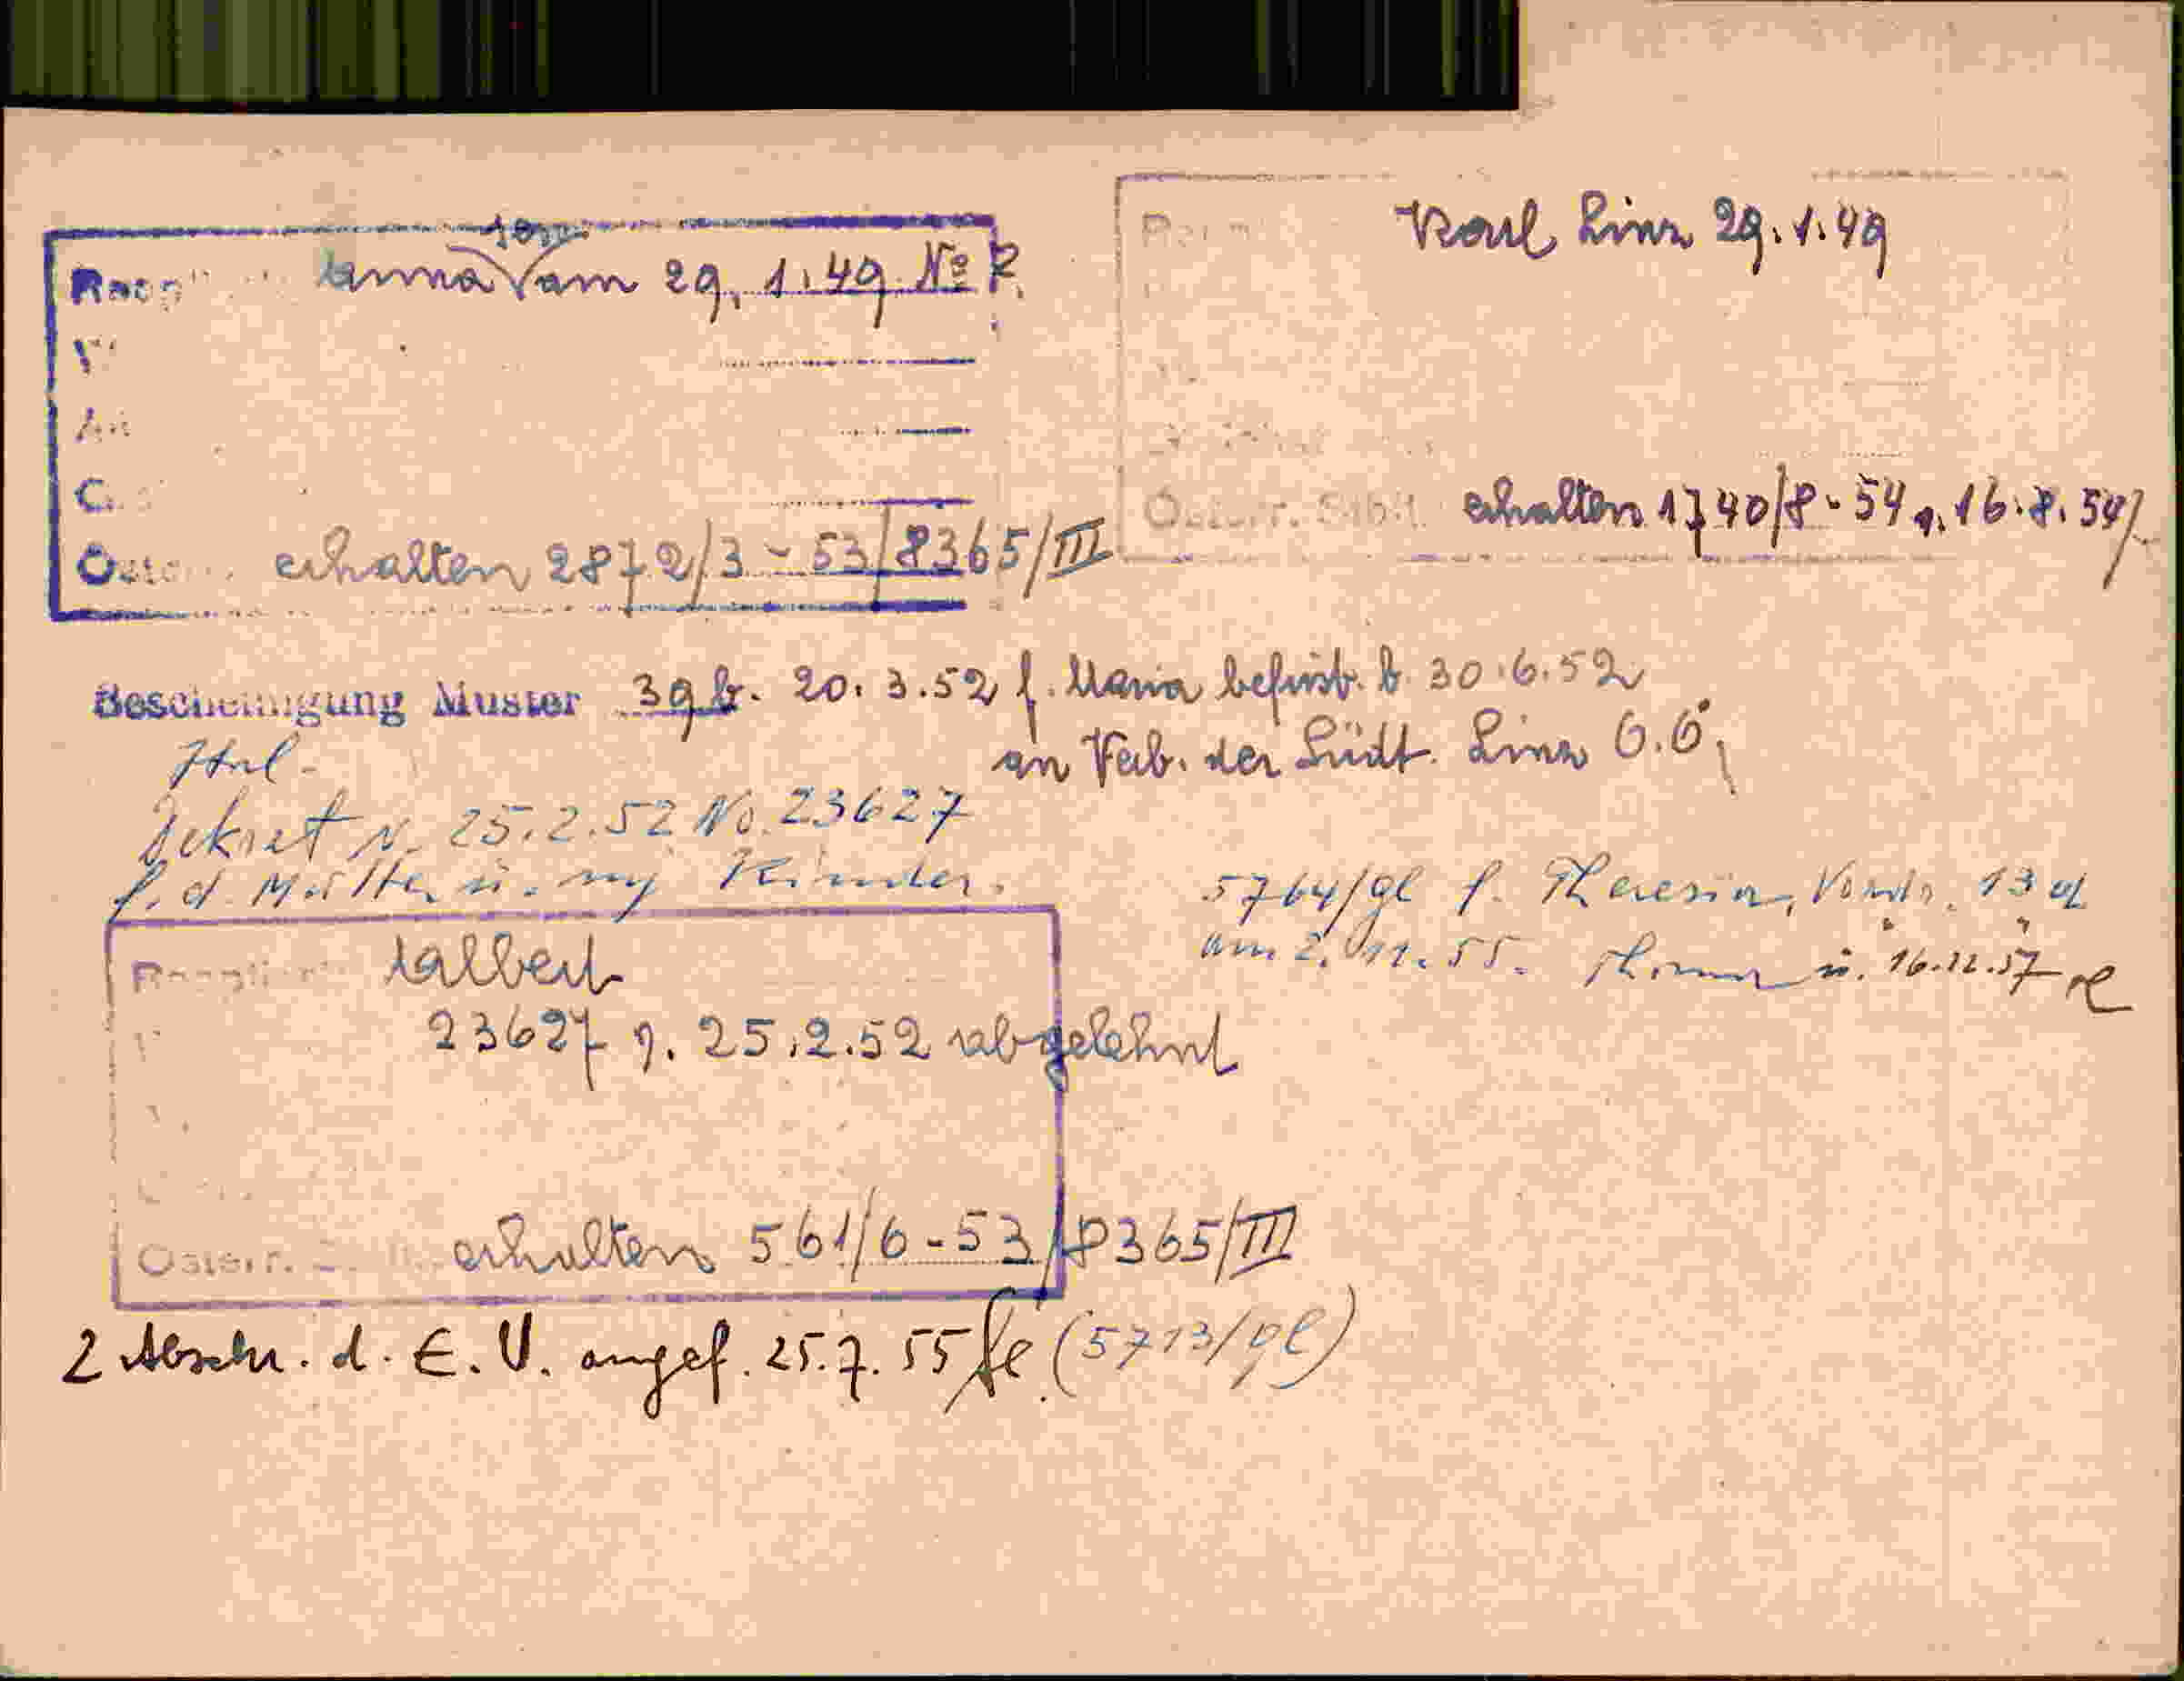 Anna am 29. 1. 49. No R.
erhalten 2872/3 - 53/8365/III
Karl Linz 29. 1. 49
Österr.
erhalten 1740/8 - 54 v. 16. 8. 54
Bescheinigung Muster 39 b. 20. 3. 52 f. Maria befrist. b. 30. 6. 52
an Verb. der Südt. Linz O.Ö.
Ital.
Dekret v. 25. 2. 52 No. 23627
f. d. Mutter u. mj Kinder.
5764/gl f. Theresia, 13 a
am 2. 11. 55. u. 16. 12. 57
Albert
23627 v. 25. 2. 52 abgelehnt
Österr.
erhalten 561/6 - 53/8365/III
2 Abschr. d. E. V. angef. 25. 7. 55 (5713/gl)